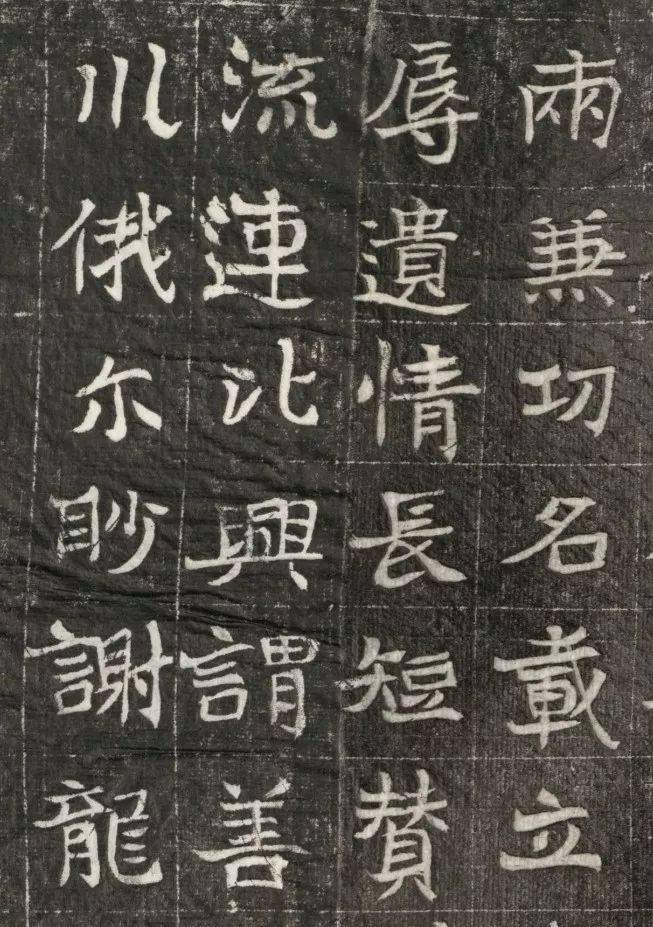 兩兼功名載立
辱遺情長短賛
流連比興謂善
川俄尒眇謝龍